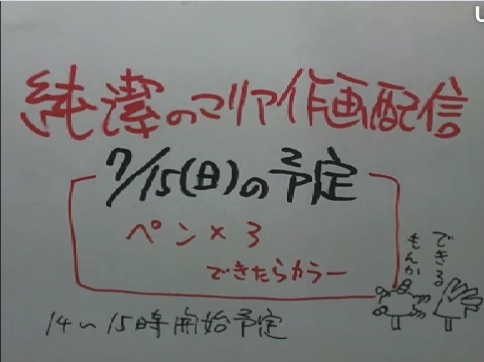 純潔のマリア作画配信
7/15(日)の予定
ペン×3
できたらカラー
できる
もんか
14〜15時開始予定